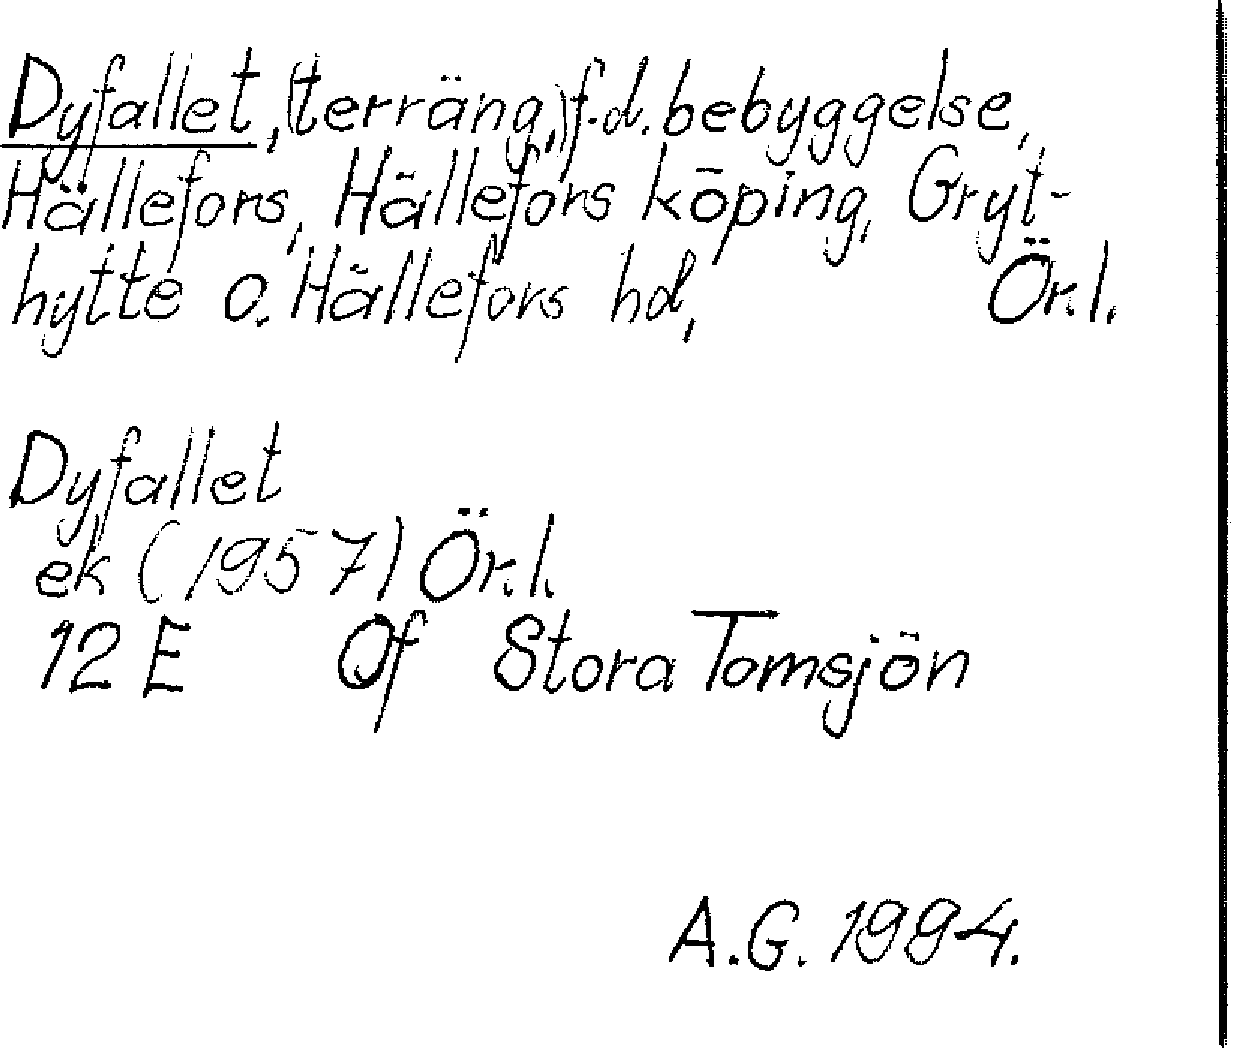 Dyfallet, (terräng,) f.d. bebyggelse,
Hällefors, Hällefors köping, Gryt-
hytte o. Hällefors hd, Ör.l.
Dyfallet
ek (1957) Ör.l.
12 E 0f Stora Tomsjön
A.G. 1994.